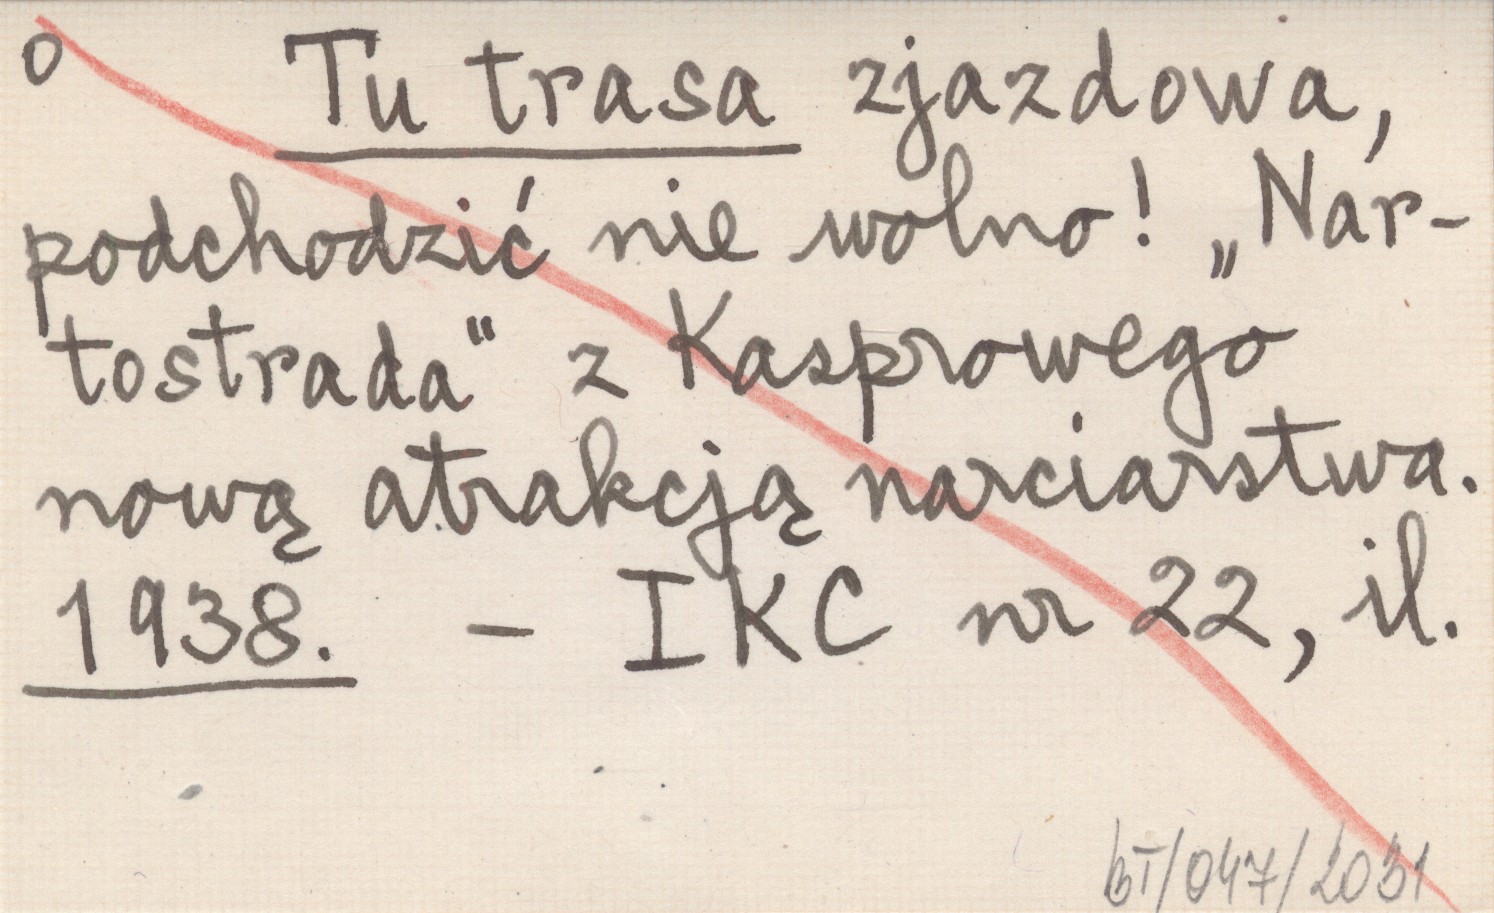 o Tu trasa zjazdowa,
podchodzić nie wolno! „Nar-
tostrada" z Kasprowego
nową atrakcją narciarstwa.
1938. – IKC nr 22, il.
BT/047/2031